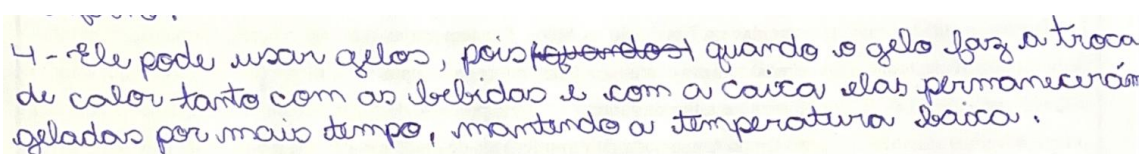 4 - Ele pode usar gelos, pois (quandos) quando o gelo faz a troca
de calor tanto com as bebidas e com a caixa elas permanecerám
geladas por mais tempo, mantendo a temperatura baixa.